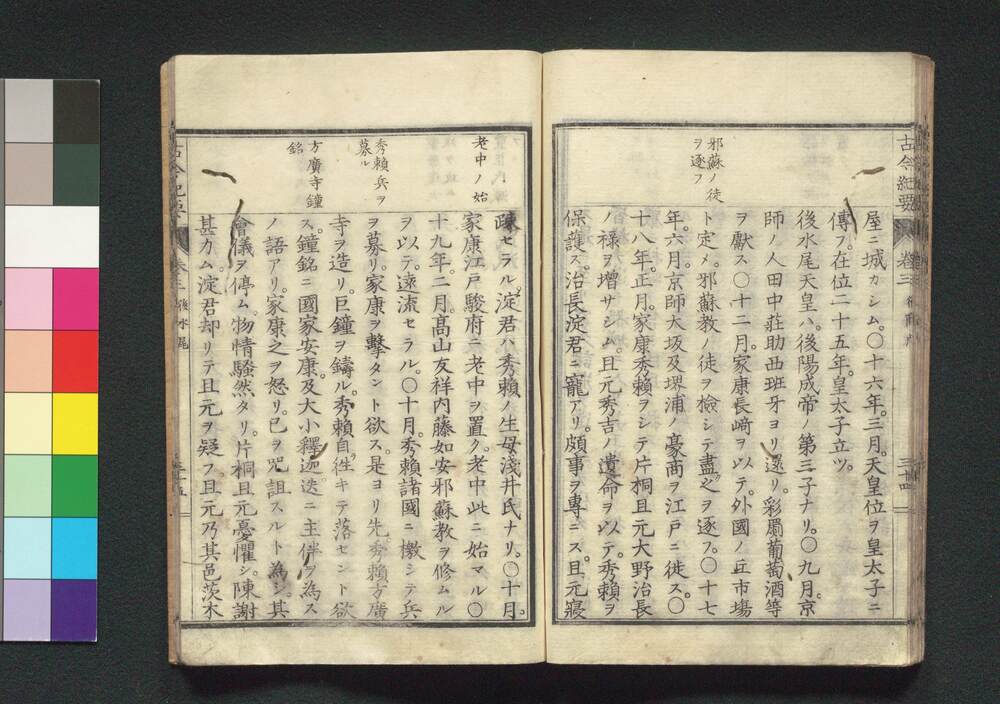 古今紀要 卷三
三十四
邪蘇ノ徒
ヲ逐フ
屋ニ城カシム。〇十六年。三月。天皇位ヲ皇太子ニ
傳フ。在位二十五年。皇太子立ツ。
後水尾天皇ハ。後陽成帝ノ第三子ナリ。〇九月。京
師ノ人田中莊助西班牙ヨリ還リ。彩罽葡萄酒等
ヲ獻ス〇十二月。家康長崎ヲ以テ。外國ノ互市場
ト定メ。邪蘇教ノ徒ヲ檢シテ盡ク之ヲ逐フ。〇十七
年。六月。京師大坂及堺浦ノ豪商ヲ江戸ニ徙ス。〇
十八年。正月。家康秀賴ヲシテ片桐且元大野治長
ノ祿ヲ增サシム。且元秀吉ノ遺命ヲ以テ。秀賴ヲ
保護ス。治長淀君ニ寵アリ。頗事ヲ專ニス。且元寢
老中ノ始
秀賴兵ヲ
募ル
方廣寺鐘
銘
疎セラル。淀君ハ秀賴ノ生母淺井氏ナリ。〇十月。
家康江戸駿府ニ老中ヲ置ク。老中此ニ始マル〇
十九年。二月。髙山友祥内藤如安邪蘇教ヲ修ムル
ヲ以テ。遠流セラル。〇十月。秀賴諸國ニ檄シテ兵
ヲ募リ。家康ヲ擊タント欲ス。是ヨリ先秀賴方廣
寺ヲ造リ。巨鐘ヲ鑄ル。秀賴自ラ徃キテ落セント欲
ス。鐘銘ニ國家安康。及大小釋迦迭ニ主伴ヲ為ス
ノ語アリ。家康之ヲ怒リ。已ヲ咒詛スルト為シ。其
會儀ヲ停ム。物情騷然タリ。片桐且元憂懼シ。陳謝
甚カム。淀君却リテ且元ヲ疑フ。且元乃其邑茨木
卷三 後水尾